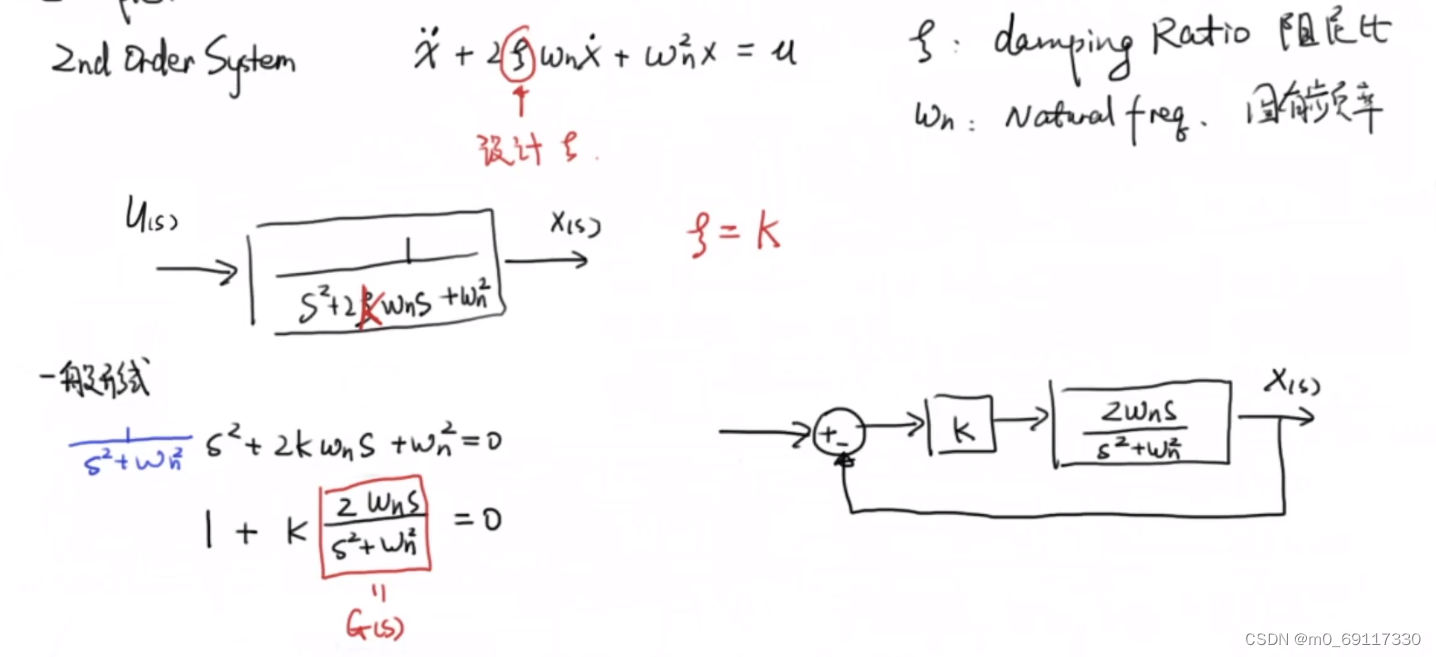 2nd Order System
ẍ + 2ξωnẋ + ωn²x = u
ξ: damping Ratio 阻尼比
ωn: Natural freq. 固有频率
设计 ξ.
U(s)
X(s)
1
s²+2kωns+ωn²
ξ = k
一般形式
1
s²+ωn²
s²+2kωns+ωn²=0
1 + k
2ωns
s²+ωn²
= 0
=
G(s)
+
-
k
2ωns
s²+ωn²
X(s)
CSDN @m0_69117330